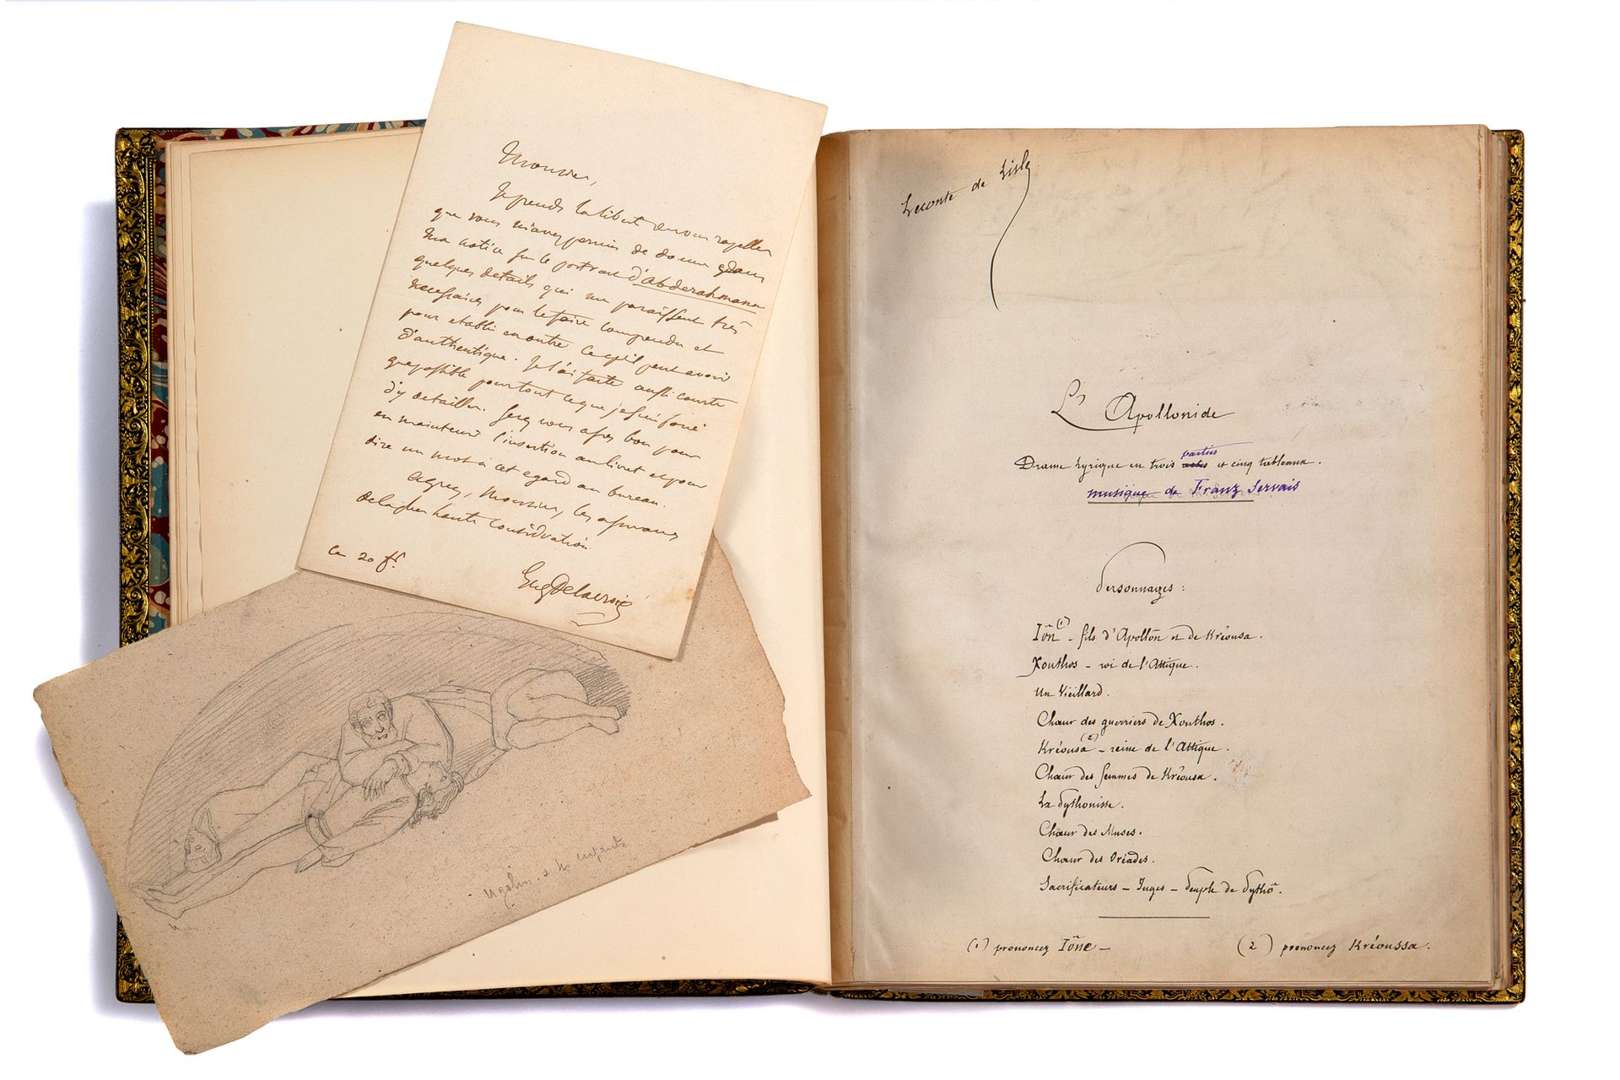 Monsieur,
Je prends la liberté de vous rappeller
que vous m'avez permis de donner dans
ma notice sur le portrait d'Abderahmann
quelques détails qui me paraissent très
necessaires pour le faire comprendre et
pour etablir en outre ce qu'il peut avoir
d'authentique. Je l'ai faite aussi courte
que possible pour tout ce que j'ai
d'y detailler. Serez vous assez bon pour
en maintenir l'insertion au livret et pour
dire un mot à cet egard au bureau.
Agreez, Monsieur, les assurances
de la plus haute consideration
Eug Delacroix
ce 20 f.
Ugolin
Leconte de Lisle
L'Apollonide
Drame Lyrique en trois actes parties et cinq tableaux.
musique de Franz Servais
Personnages :
Iôn (1) - fils d'Apollôn et de Kréousa.
Xouthos - roi de l'Attique.
Un Vieillard.
Chœur des guerriers de Xouthos.
Kréousa (2) - reine de l'Attique.
Chœur des femmes de Kréousa.
La Pythonisse.
Chœur des Muses.
Chœur des Oréades.
Sacrificateurs - Juges - Peuple de Pythô.
(1) prononcez Iône -
(2) prononcez Kréoussa.